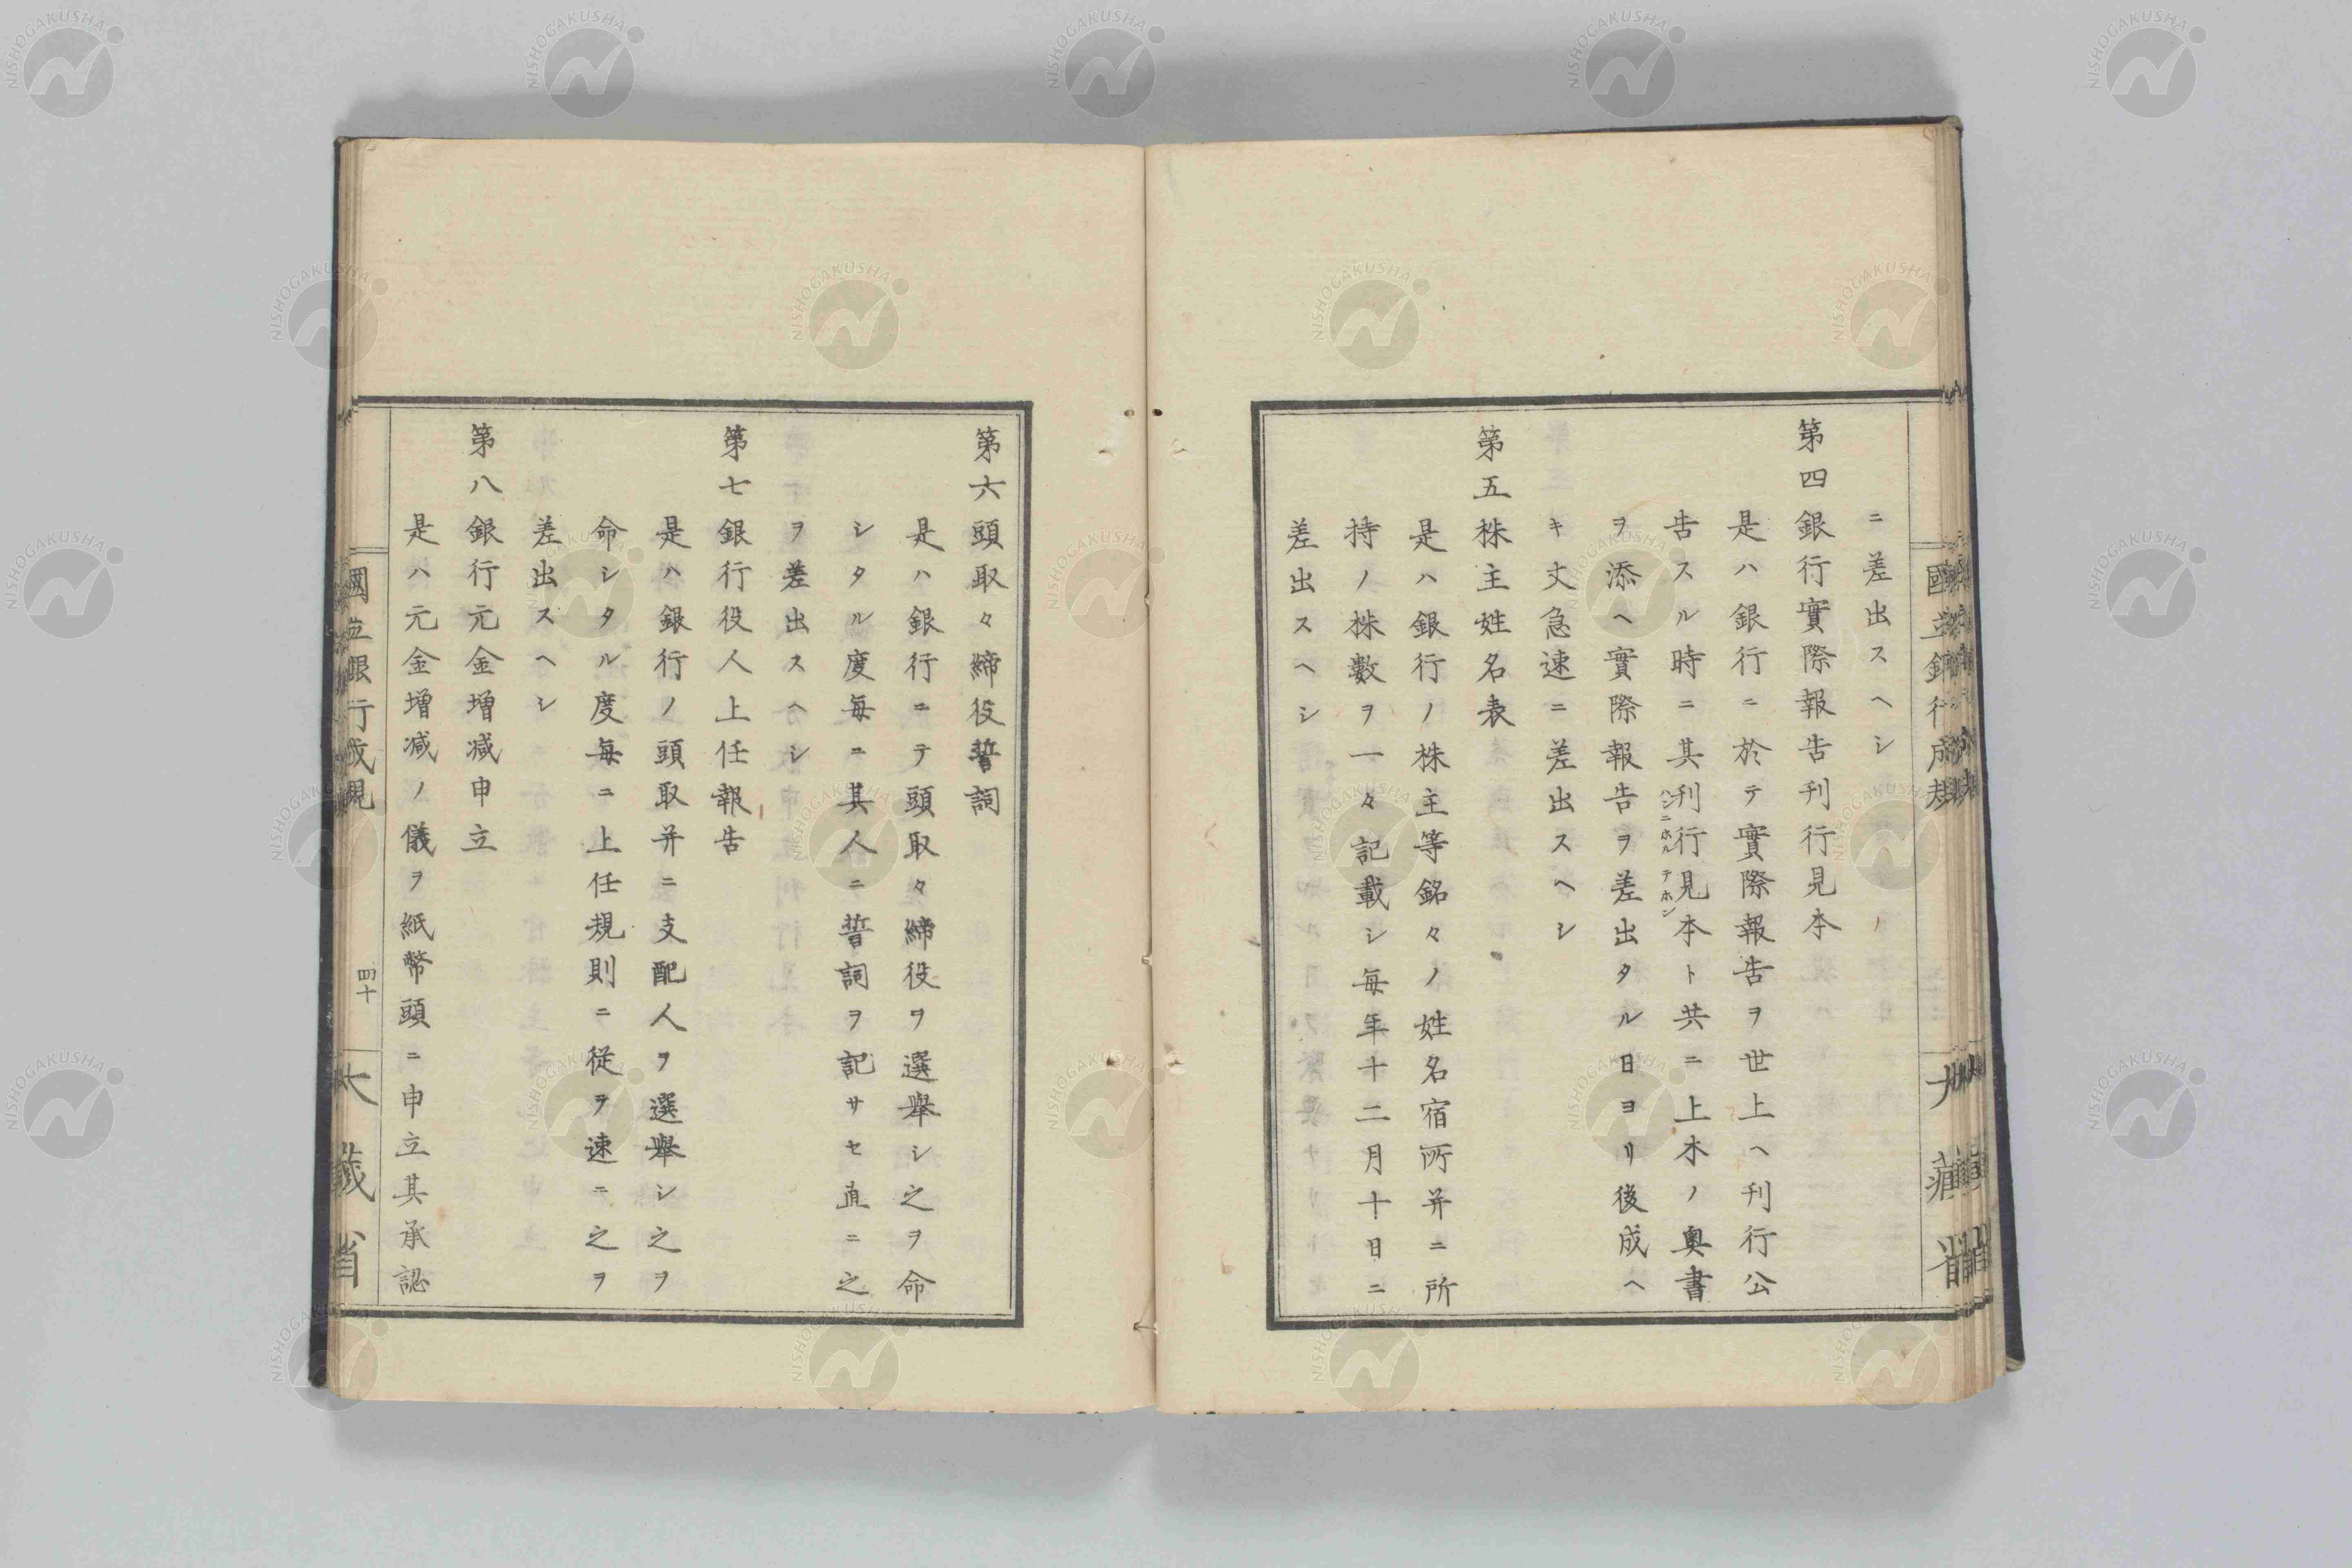 ニ差出スヘシ
第四銀行實際報告刊行見本
是ハ銀行ニ於テ實際報告ヲ世上ヘ刊行公
告スル時ニ其刊行見本ト共ニ上木ノ奥書
ハンニホル テホン
ヲ添ヘ實際報告ヲ差出タル日ヨリ後成ヘ
キ丈急速ニ差出スヘシ
第五株主姓名表
是ハ銀行ノ株主等銘々ノ姓名宿所并ニ所
持ノ株數ヲ一々記載シ毎年十二月十日ニ
差出スヘシ
第六頭取々締役誓詞
是ハ銀行ニテ頭取々締役ヲ選舉シ之ヲ命
シタル度毎ニ其人ニ誓詞ヲ記サセ直ニ之
ヲ差出スヘシ
第七銀行役人上任報告
是ハ銀行ノ頭取并ニ支配人ヲ選舉シ之ヲ
命シタル度毎ニ上任規則ニ従ヲ速ニ之ヲ
差出スヘシ
第八銀行元金増减申立
是ハ元金増减ノ儀ヲ紙幣頭ニ申立其承認
國立銀行成規
四十
大藏省
NISHOGAKUSHA